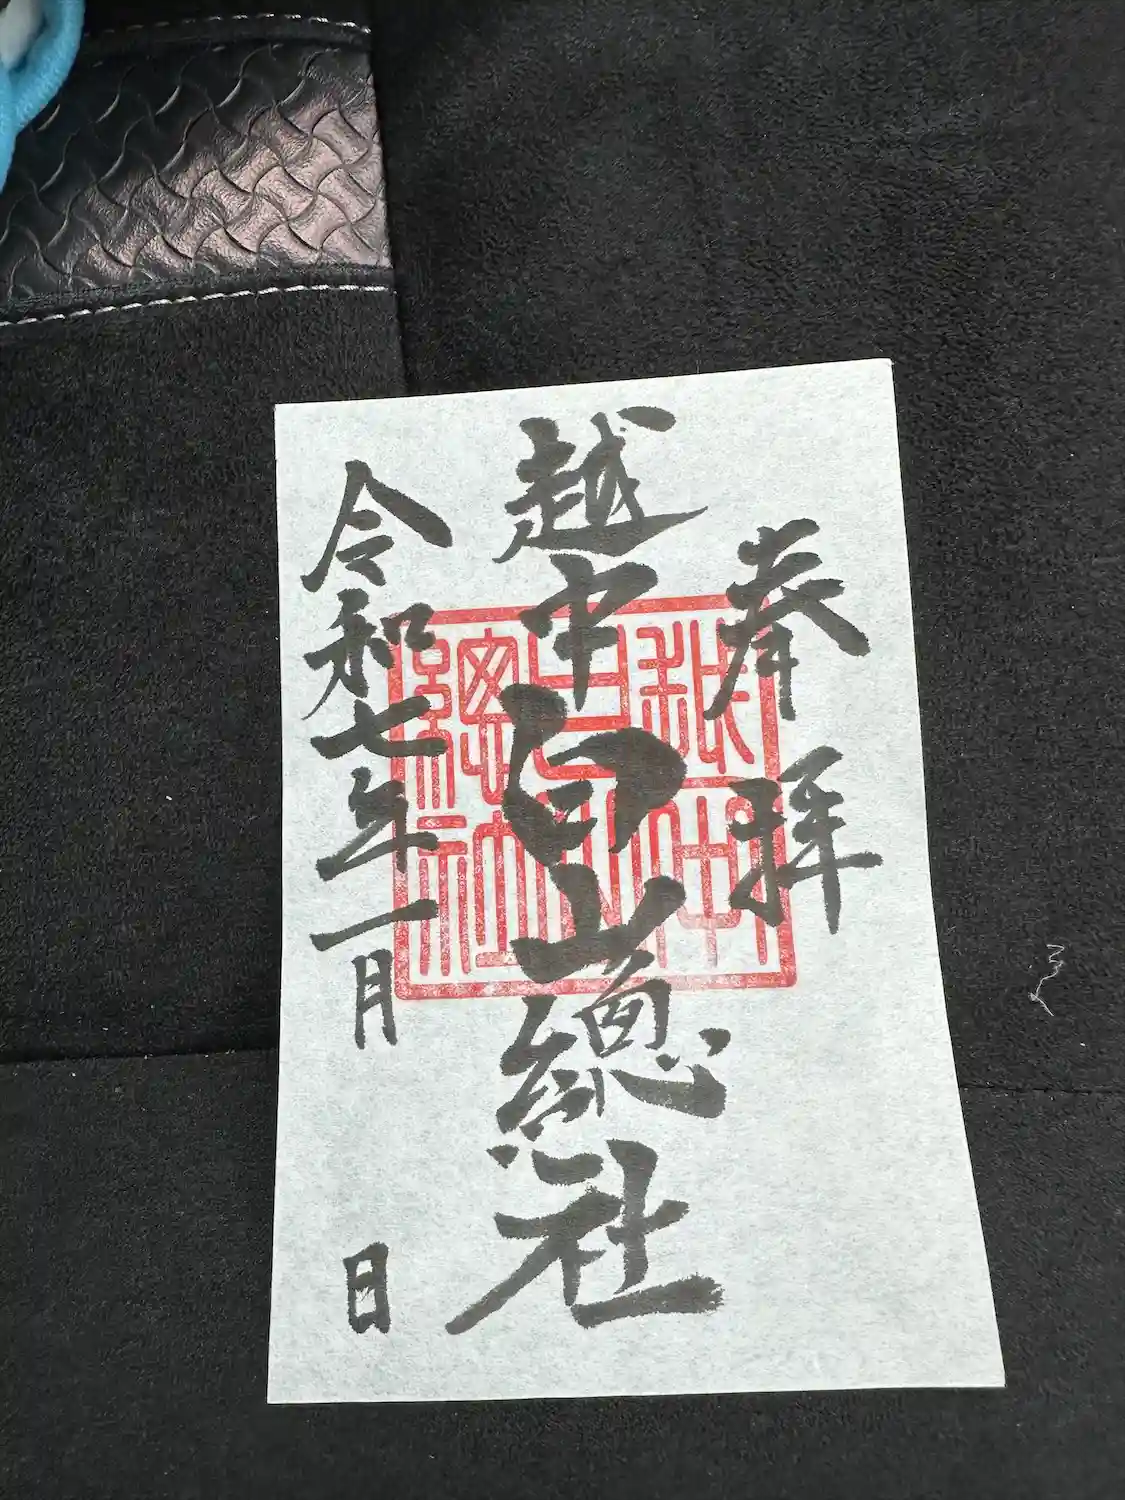 奉拝
越中白山總社
令和七年一月 日
越中白山總社